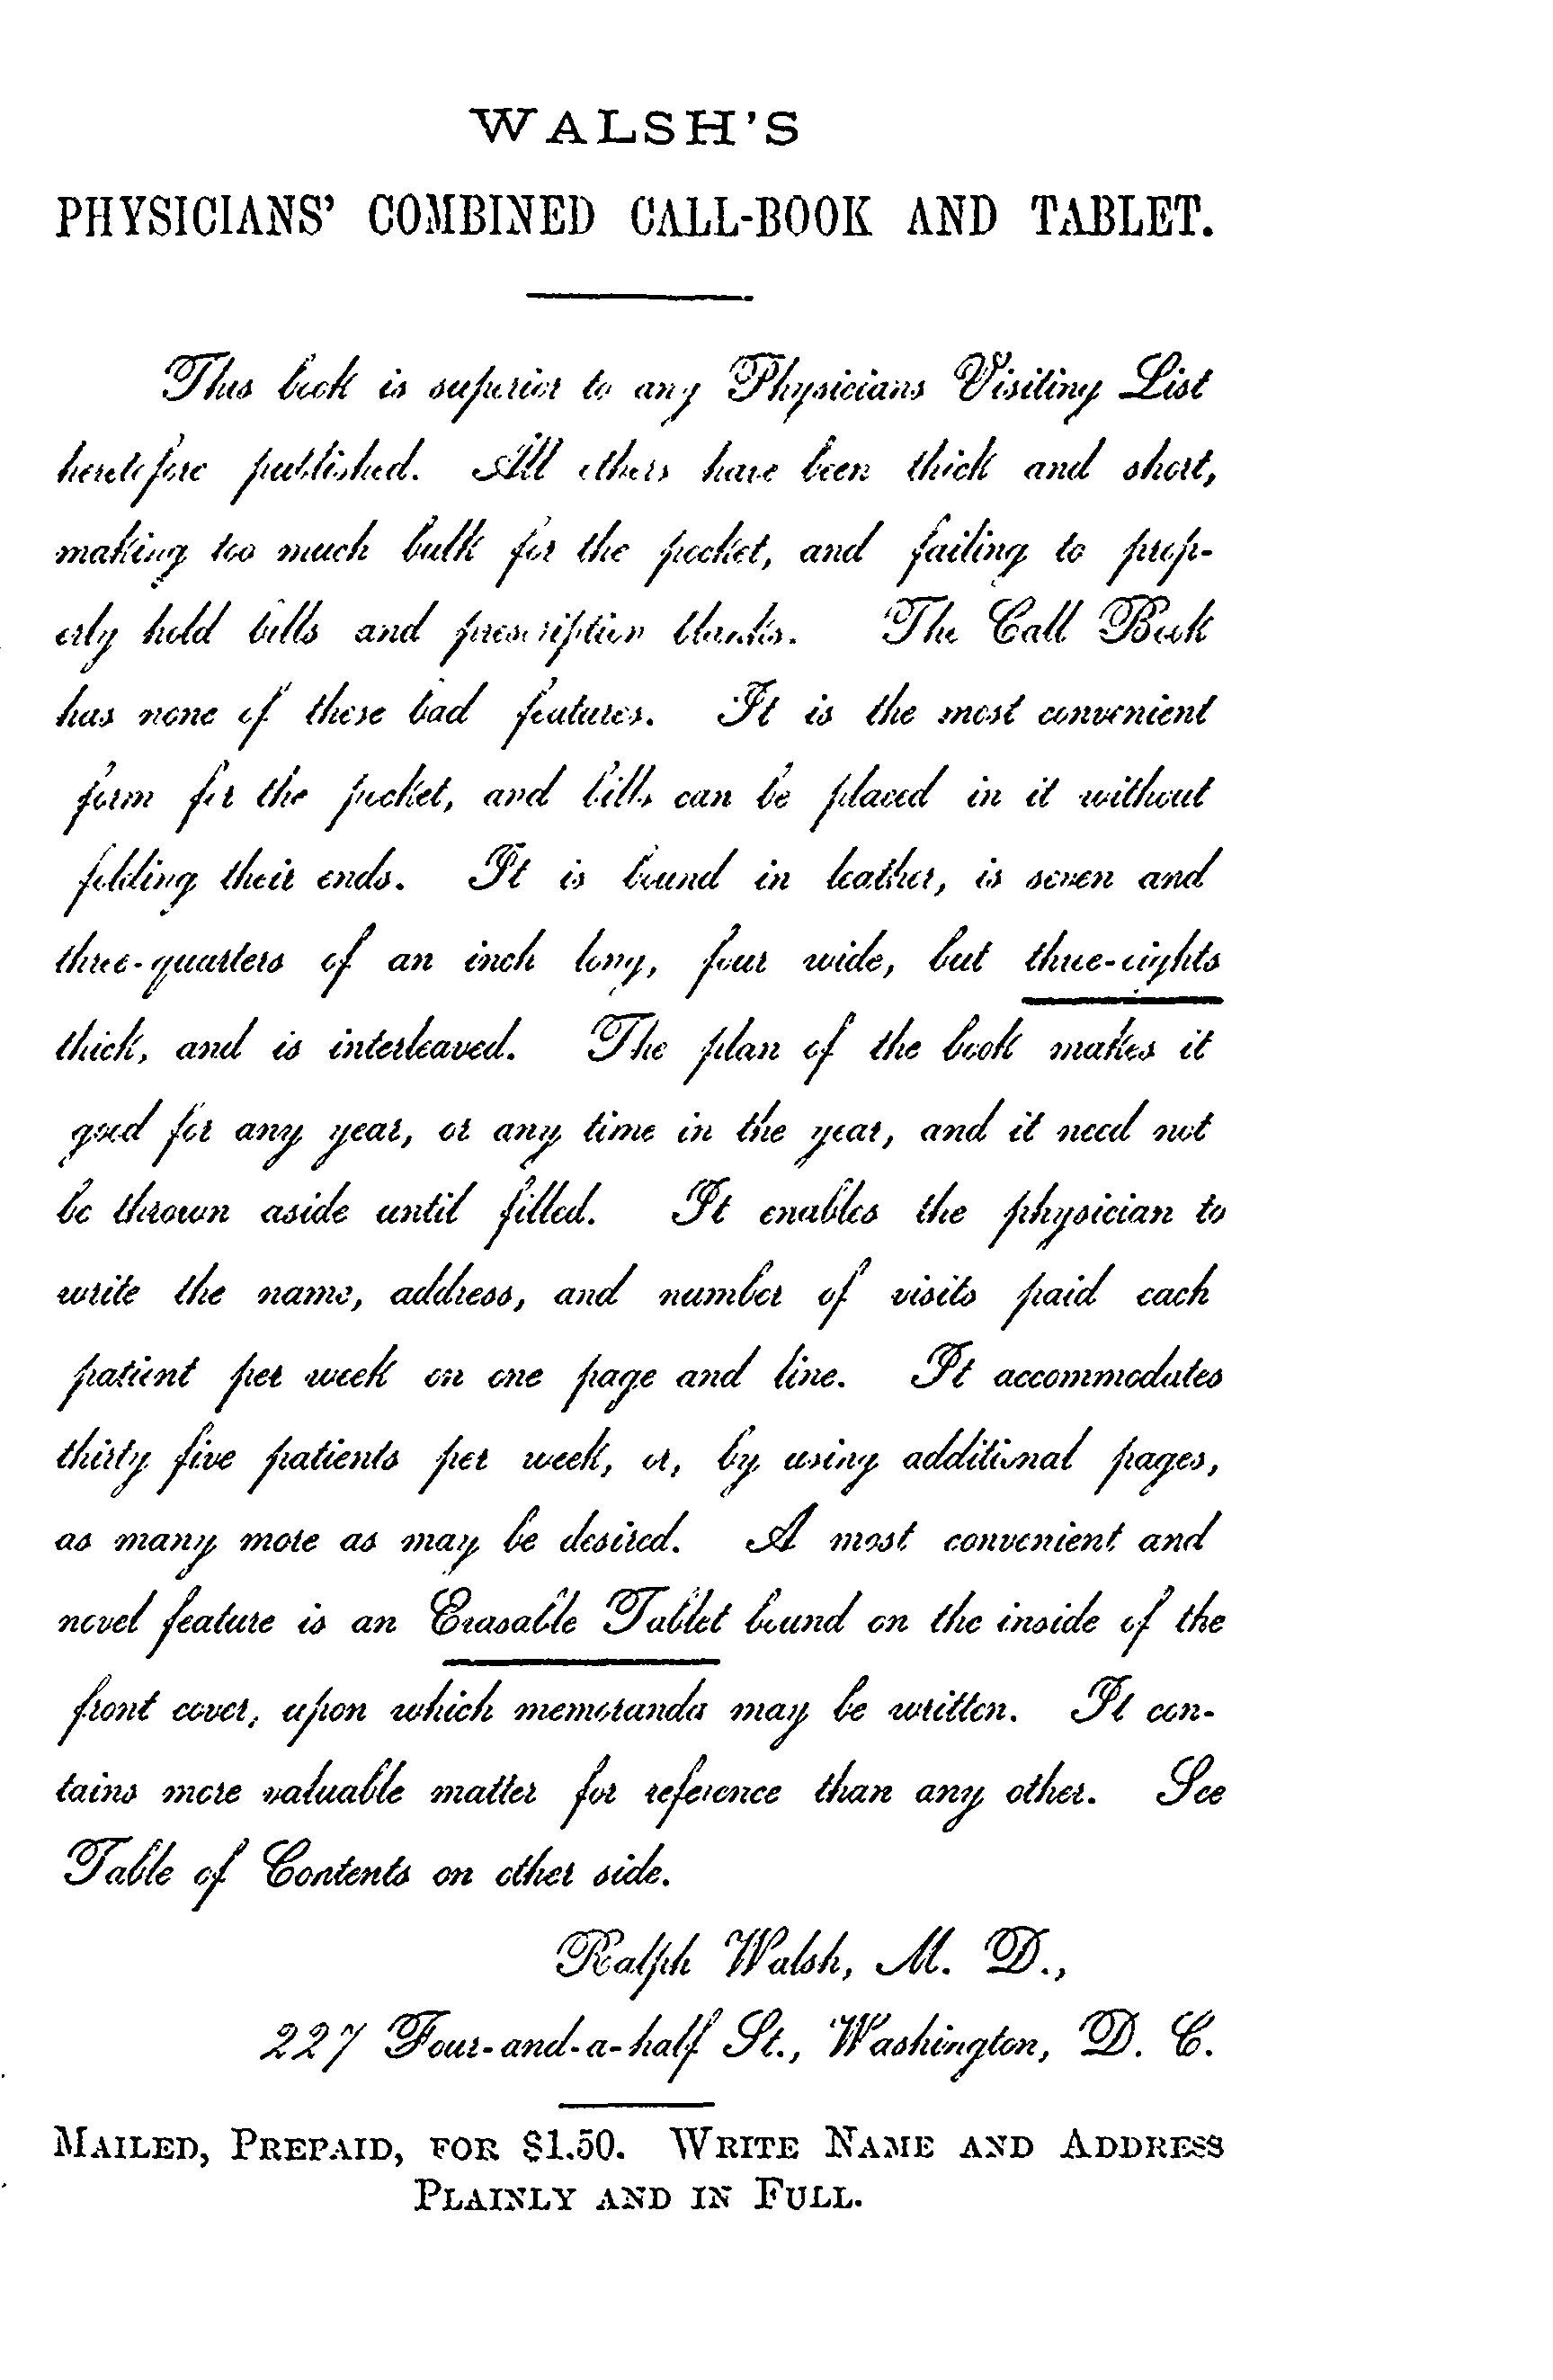 WALSH'S
PHYSICIANS' COMBINED CALL-BOOK AND TABLET.
This book is superior to any Physicians Visiting List
heretofore published. All others have been thick and short,
making too much bulk for the pocket, and failing to prop-
erly hold bills and prescription blanks. The Call Book
has none of these bad features. It is the most convenient
form for the pocket, and bills can be placed in it without
folding their ends. It is bound in leather, is seven and
three-quarters of an inch long, four wide, but three-eights
thick, and is interleaved. The plan of the book makes it
good for any year, or any time in the year, and it need not
be thrown aside until filled. It enables the physician to
write the name, address, and number of visits paid each
patient per week on one page and line. It accommodates
thirty five patients per week, or, by using additional pages,
as many more as may be desired. A most convenient and
novel feature is an Erasable Tablet bound on the inside of the
front cover, upon which memoranda may be written. It con-
tains more valuable matter for reference than any other. See
Table of Contents on other side.
Ralph Walsh, M. D.,
227 Four-and-a-half St., Washington, D. C.
MAILED, PREPAID, FOR $1.50. WRITE NAME AND ADDRESS
PLAINLY AND IN FULL.